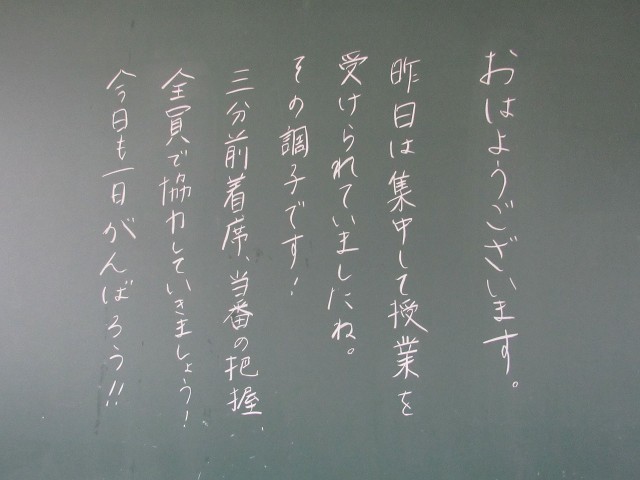 おはようございます。
昨日は集中して授業を
受けられていましたね。
その調子です!
三分前着席、当番の把握、
全員で協力していきましょう!
今日も一日がんばろう!!